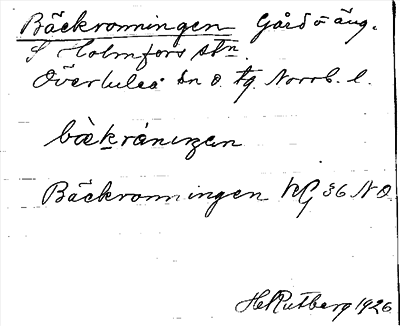 Bäckronningen Gård o äng.
S Holmfors stn.
Överluleå sn o. tg. Norrb. l.
bäkråningen
Bäckronningen KG 36 NO.
H Rutberg 1926